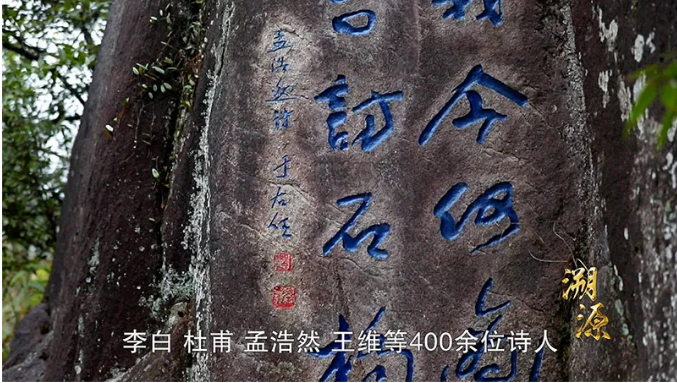 我今何
台訪石
孟浩然詩 于右任
溯源
李白 杜甫 孟浩然 王维等400余位诗人